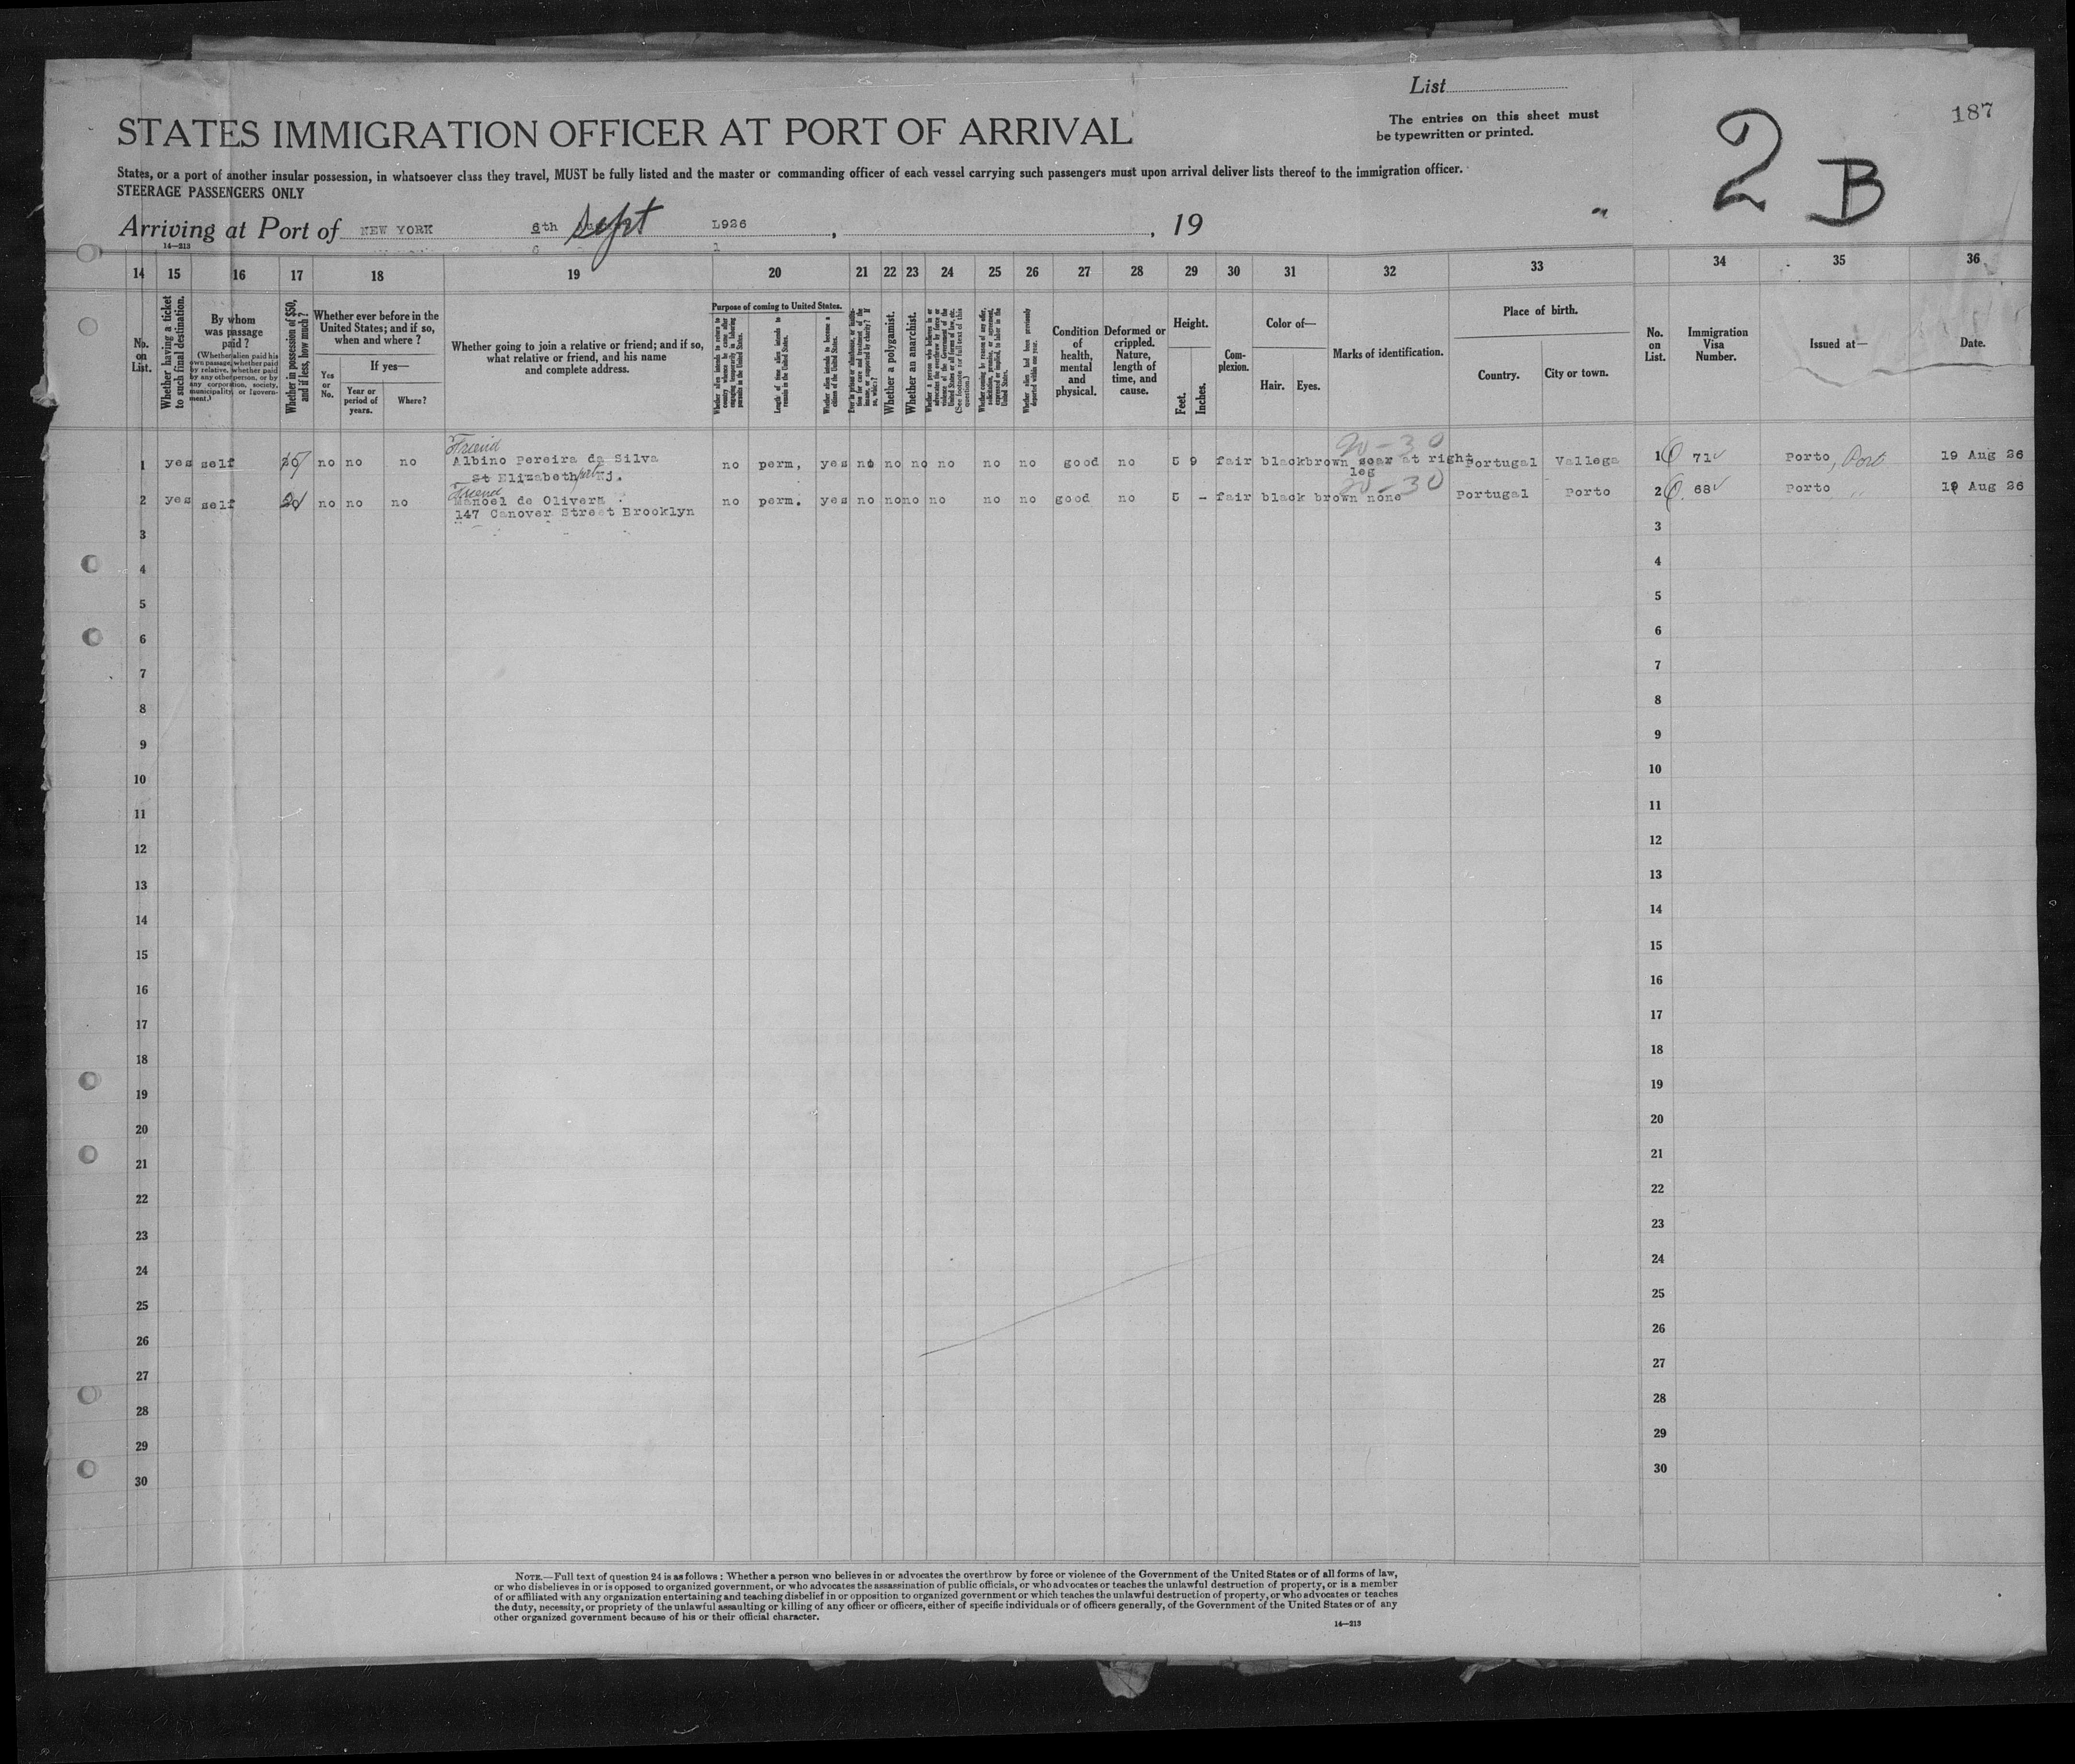 List
187
The entries on this sheet must
be typewritten or printed.
2 B
STATES IMMIGRATION OFFICER AT PORT OF ARRIVAL
States, or a port of another insular possession, in whatsoever class they travel, MUST be fully listed and the master or commanding officer of each vessel carrying such passengers must upon arrival deliver lists thereof to the immigration officer.
STEERAGE PASSENGERS ONLY
Arriving at Port of NEW YORK 6th Sept L926 , , 19
14—213
14 15 16 17 18 19 20 21 22 23 24 25 26 27 28 29 30 31 32 33 34 35 36
No. on List.
Whether having a ticket to such final destination.
By whom was passage paid?
(Whether alien paid his own passage, whether paid by relative, whether paid by any other person, or by any corporation, society, municipality, or government.)
Whether in possession of $50, and if less, how much?
Whether ever before in the United States; and if so, when and where?
Yes or No.
If yes—
Year or period of years.
Where?
Whether going to join a relative or friend; and if so, what relative or friend, and his name and complete address.
Purpose of coming to United States.
Whether alien intends to return to country whence he came after engaging temporarily in laboring pursuits in the United States.
Length of time alien intends to remain in the United States.
Whether alien intends to become a citizen of the United States.
Ever in prison or almshouse, or institution for care and treatment of the insane, or supported by charity? If so, which?
Whether a polygamist.
Whether an anarchist.
(See footnote for full text of this question.)
Whether coming by reason of any offer, solicitation, promise, or agreement, expressed or implied, to labor in the United States.
Whether alien had been previously deported within one year.
Condition of health, mental and physical.
Deformed or crippled. Nature, length of time, and cause.
Height.
Feet.
Inches.
Complexion.
Color of—
Hair.
Eyes.
Marks of identification.
Place of birth.
Country.
City or town.
No. on List.
Immigration Visa Number.
Issued at—
Date.
Friend 20-30
1 yes self no no no Albino Pereira da Silva no perm, yes no no no no no no good no 5 9 fair black brown scar at right Portugal Vallega 1 71 Porto, Port 19 Aug 26
St Elizabeth NJ. leg
Friend 20-30
2 yes self no no no Manoel de Olivera no perm. yes no no no no no no good no 5 - fair black brown none Portugal Porto 2 68 Porto 19 Aug 26
147 Canover Street Brooklyn
3 3
4 4
5 5
6 6
7 7
8 8
9 9
10 10
11 11
12 12
13 13
14 14
15 15
16 16
17 17
18 18
19 19
20 20
21 21
22 22
23 23
24 24
25 25
26 26
27 27
28 28
29 29
30 30
NOTE.—Full text of question 24 is as follows: Whether a person who believes in or advocates the overthrow by force or violence of the Government of the United States or of all forms of law,
or who disbelieves in or is opposed to organized government, or who advocates the assassination of public officials, or who advocates or teaches the unlawful destruction of property, or is a member
of or affiliated with any organization entertaining and teaching disbelief in or opposition to organized government or which teaches the unlawful destruction of property, or who advocates or teaches
the duty, necessity, or propriety of the unlawful assaulting or killing of any officer or officers, either of specific individuals or of officers generally, of the Government of the United States or of any
other organized government because of his or their official character.
14—213